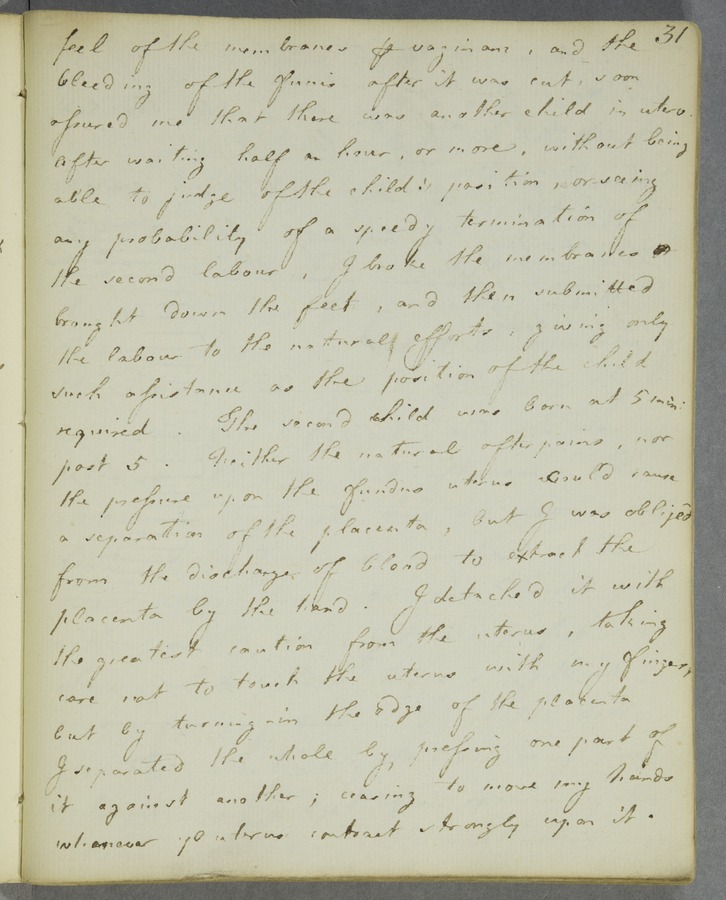 31
feel of the membranes p vaginam, and the
bleeding of the funis after it was cut, soon
assured me that there was another child in utero.
After waiting half an hour, or more, without being
able to judge of the child's position, or seeing
any probability of a speedy termination of
the second labour, I broke the membranes
brought down the feet, and then submitted
the labour to the natural efforts, giving only
such assistance as the position of the child
required. The second child was born at 5 min:
past 5. Neither the natural afterpains, nor
the pressure upon the fundus uterus could cause
a separation of the placenta, but I was obliged
from the discharge of blood to extract the
placenta by the hand. I detached it with
the greatest caution from the uterus, taking
care not to touch the uterus with my fingers,
but by turning-in the edge of the placenta
I separated the whole by pressing one part of
it against another; ceasing to move my hands
whenever ye uterus contract strongly upon it.